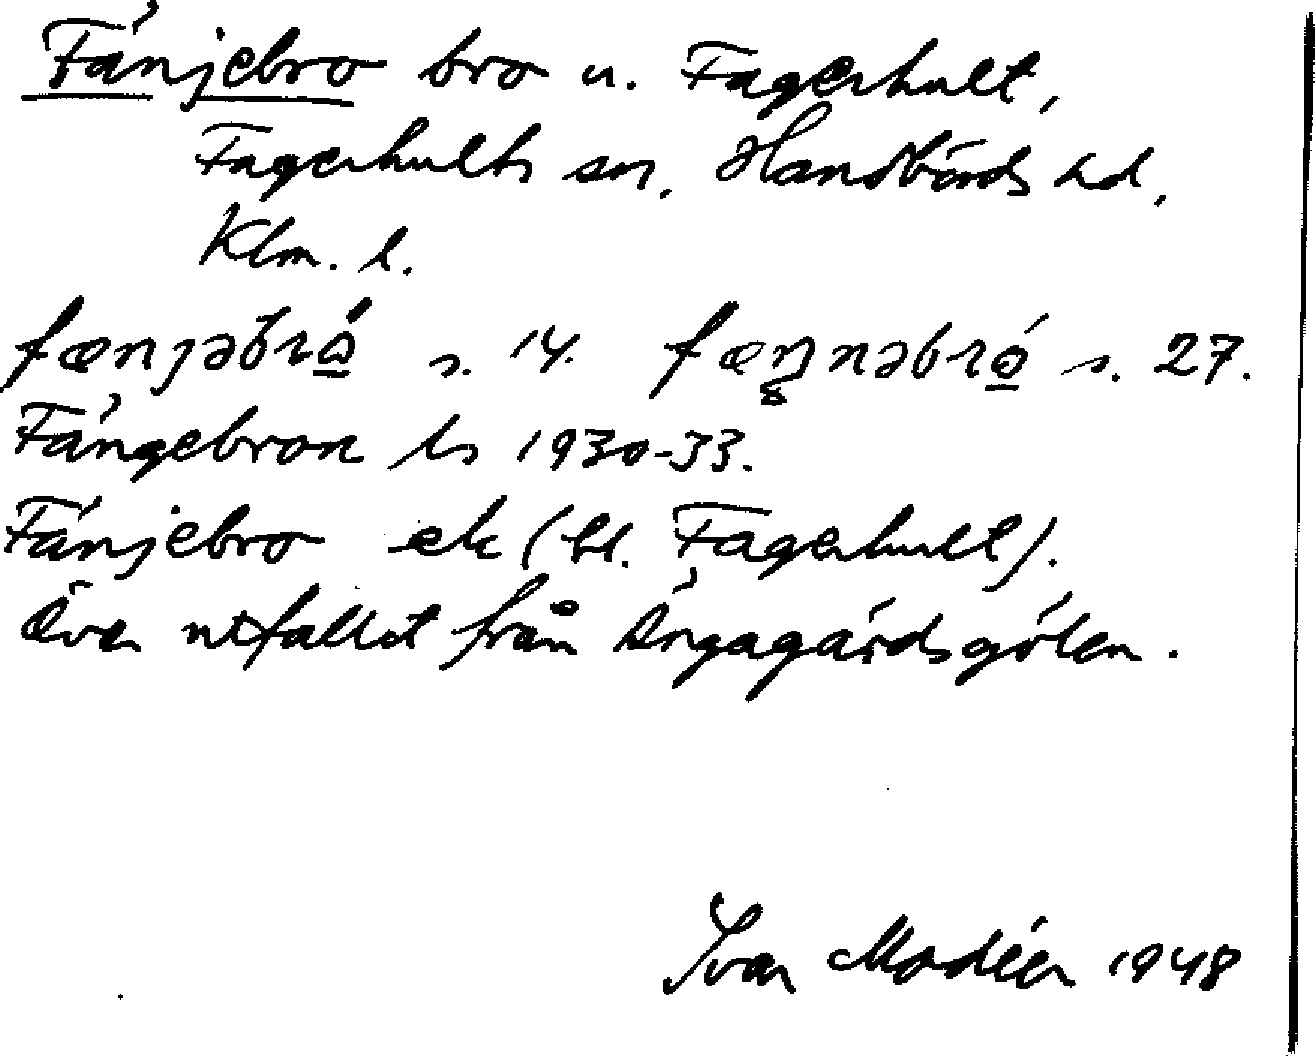 Fänjebro bro u. Fagerhult,
Fagerhults sn, Handbörds hd,
Klm. l.
fænjəbrǫ́ s. 14. fæŋnəbrǫ́ s. 27.
Fängebron ls 1930-33.
Fänjebro ek (bl. Fagerhult).
Över utfallet från Ängagärdsgölen.
Ivar Modéer 1948